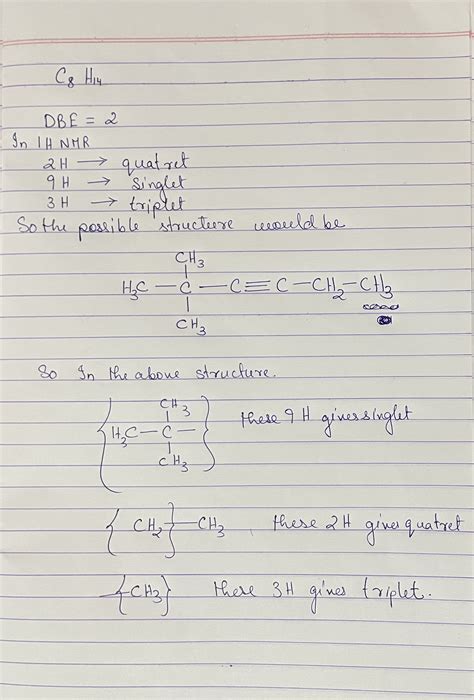 C8 H14
DBE = 2
In 1H NMR
2H → quatret
9H → Singlet
3H → triplet
So the possible structure would be
CH3
H3C — C — C≡C — CH2 — CH3
CH3
So In the above structure.
CH3
{H3C — C —} these 9H gives singlet
CH3
{CH2}—CH3, these 2H gives quatret
{CH3} these 3H gives triplet.